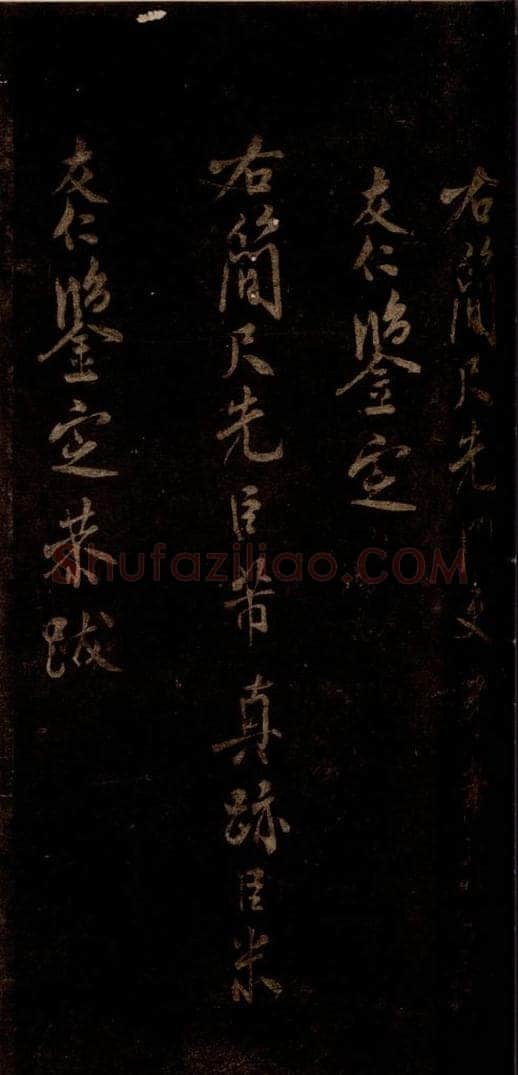 右簡尺先
友仁鑒定
右簡尺先臣芾真跡臣米
友仁鑒定恭跋
Shufaziliao.com